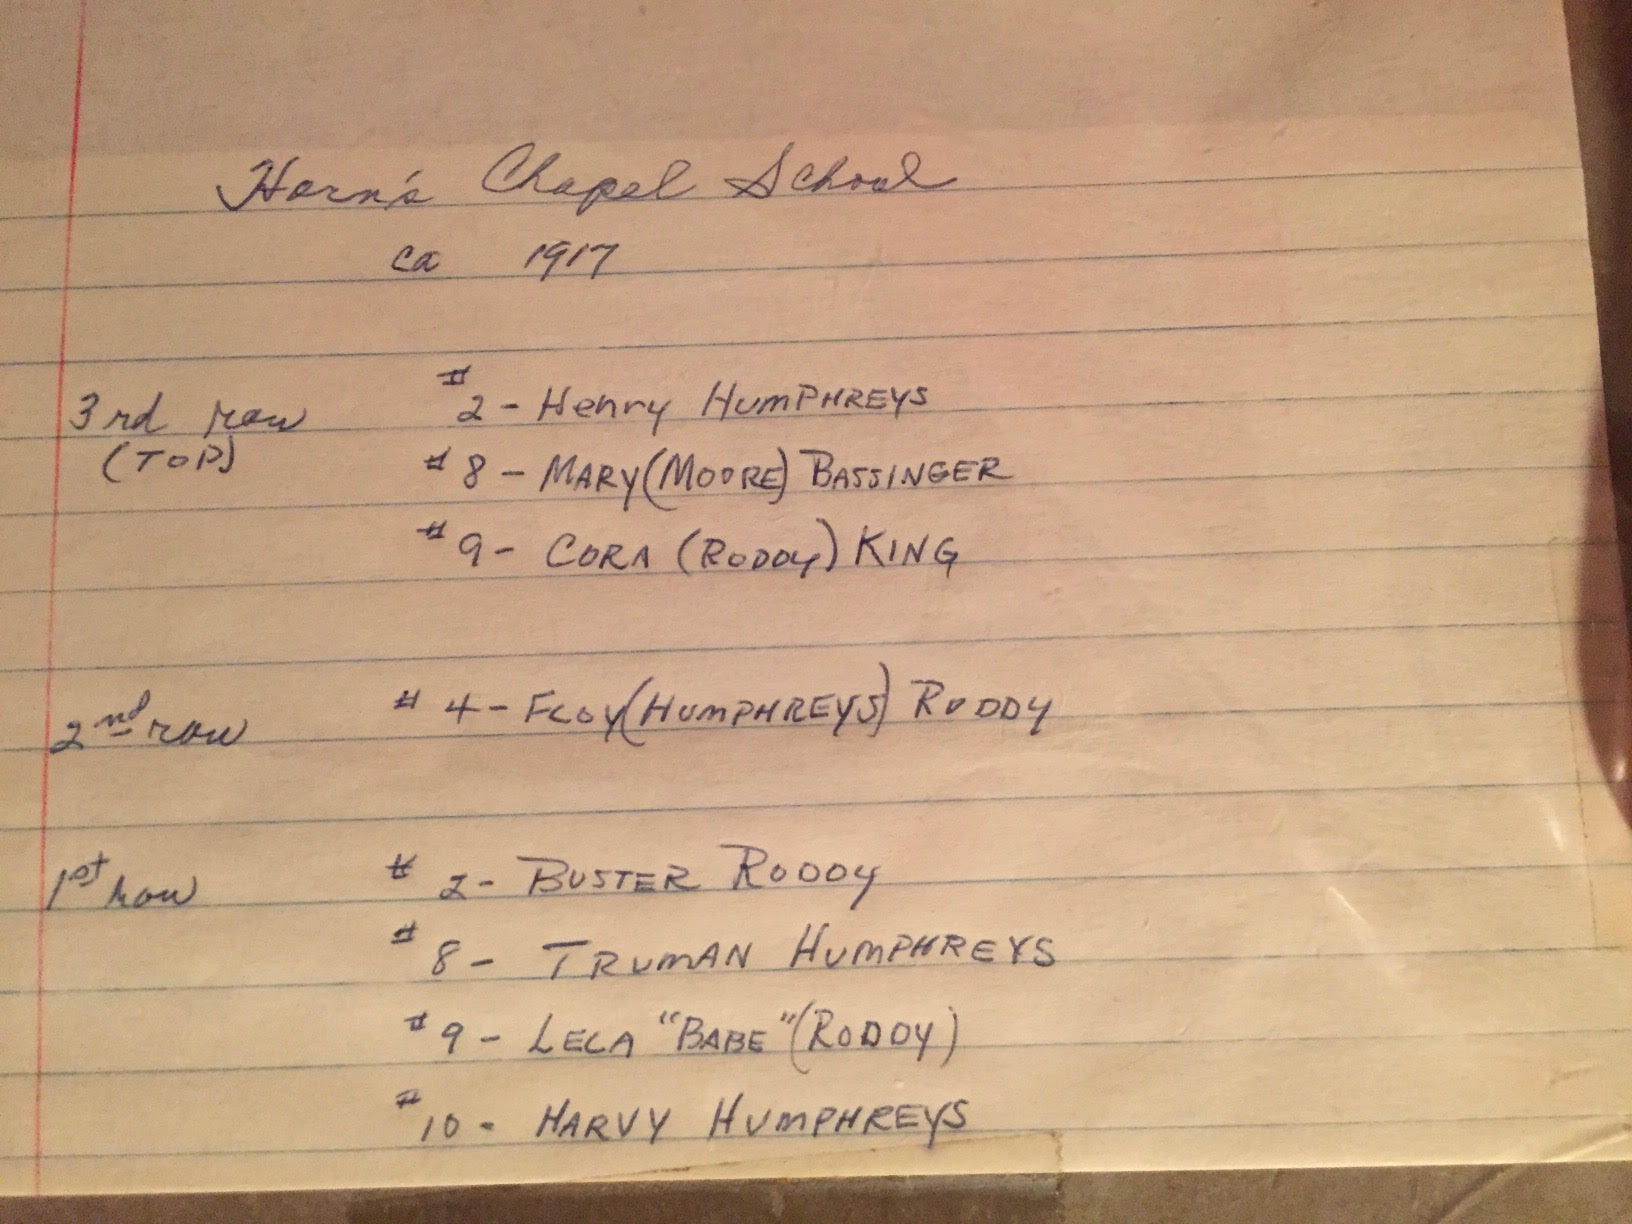 Horn's Chapel School
ca 1917
3rd row #2 - Henry HUMPHREYS
(TOP) #8 - MARY (MOORE) BASSINGER
#9 - CORA (RODDY) KING
2nd row #4 - FLOY (HUMPHREYS) RODDY
1st row #2 - BUSTER RODDY
#8 - TRUMAN HUMPHREYS
#9 - LELA "BABE" (RODDY)
#10 - HARVY HUMPHREYS